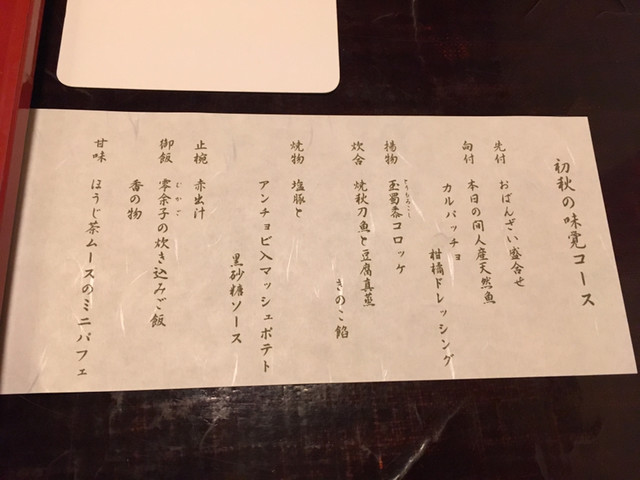 初秋の味覚コース
先付　おばんざい盛合せ
向付　本日の間人産天然魚
カルパッチョ
柑橘ドレッシング
揚物　玉蜀黍コロッケ
とうもろこし
炊合　焼秋刀魚と豆腐真薯
きのこ餡
焼物　塩豚と
アンチョビ入マッシュポテト
黒砂糖ソース
止椀　赤出汁
御飯　零余子の炊き込みご飯
むかご
香の物
甘味　ほうじ茶ムースのミニパフェ